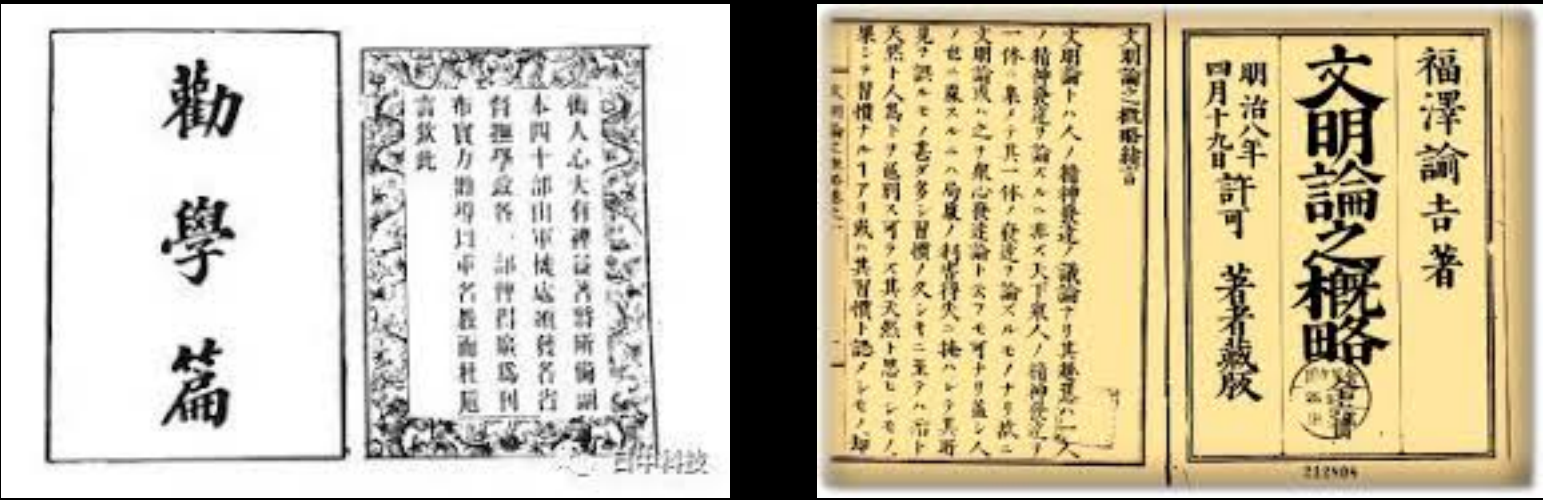 勸學篇
術人心大有裨益著將所備副
本四十部由軍機處頒發各省
督撫學政各一部俾得廣爲刊
布實力勸導以重名教而杜卮
言欽此
福澤諭吉著
文明論之概略
明治八年
四月十九日
許可
著者藏版
文明論之概略緒言
文明論トハ人ノ精神發達ノ議論ナリ其趣意ハ一人
ノ精神發達ヲ論スルニ非ズ天下衆人ノ精神發達ヲ
一体ニ集メテ其一体ノ發達ヲ論スルモノナリ故ニ
文明論或ハ之ヲ衆心發達論ト云フモ可ナリ蓋シ人
ノ世ニ處スルニハ局處ノ利害得失ニ掩ハレテ其所
見ヲ誤ルモノ甚ダ多シ習慣ノ久シキニ至テハ殆ト
天然ト人爲トヲ區別ス可ラズ其天然ト思ヒシモノ、
果シテ習慣ナルヿアリ或ハ其習慣ト認メシモノ、却